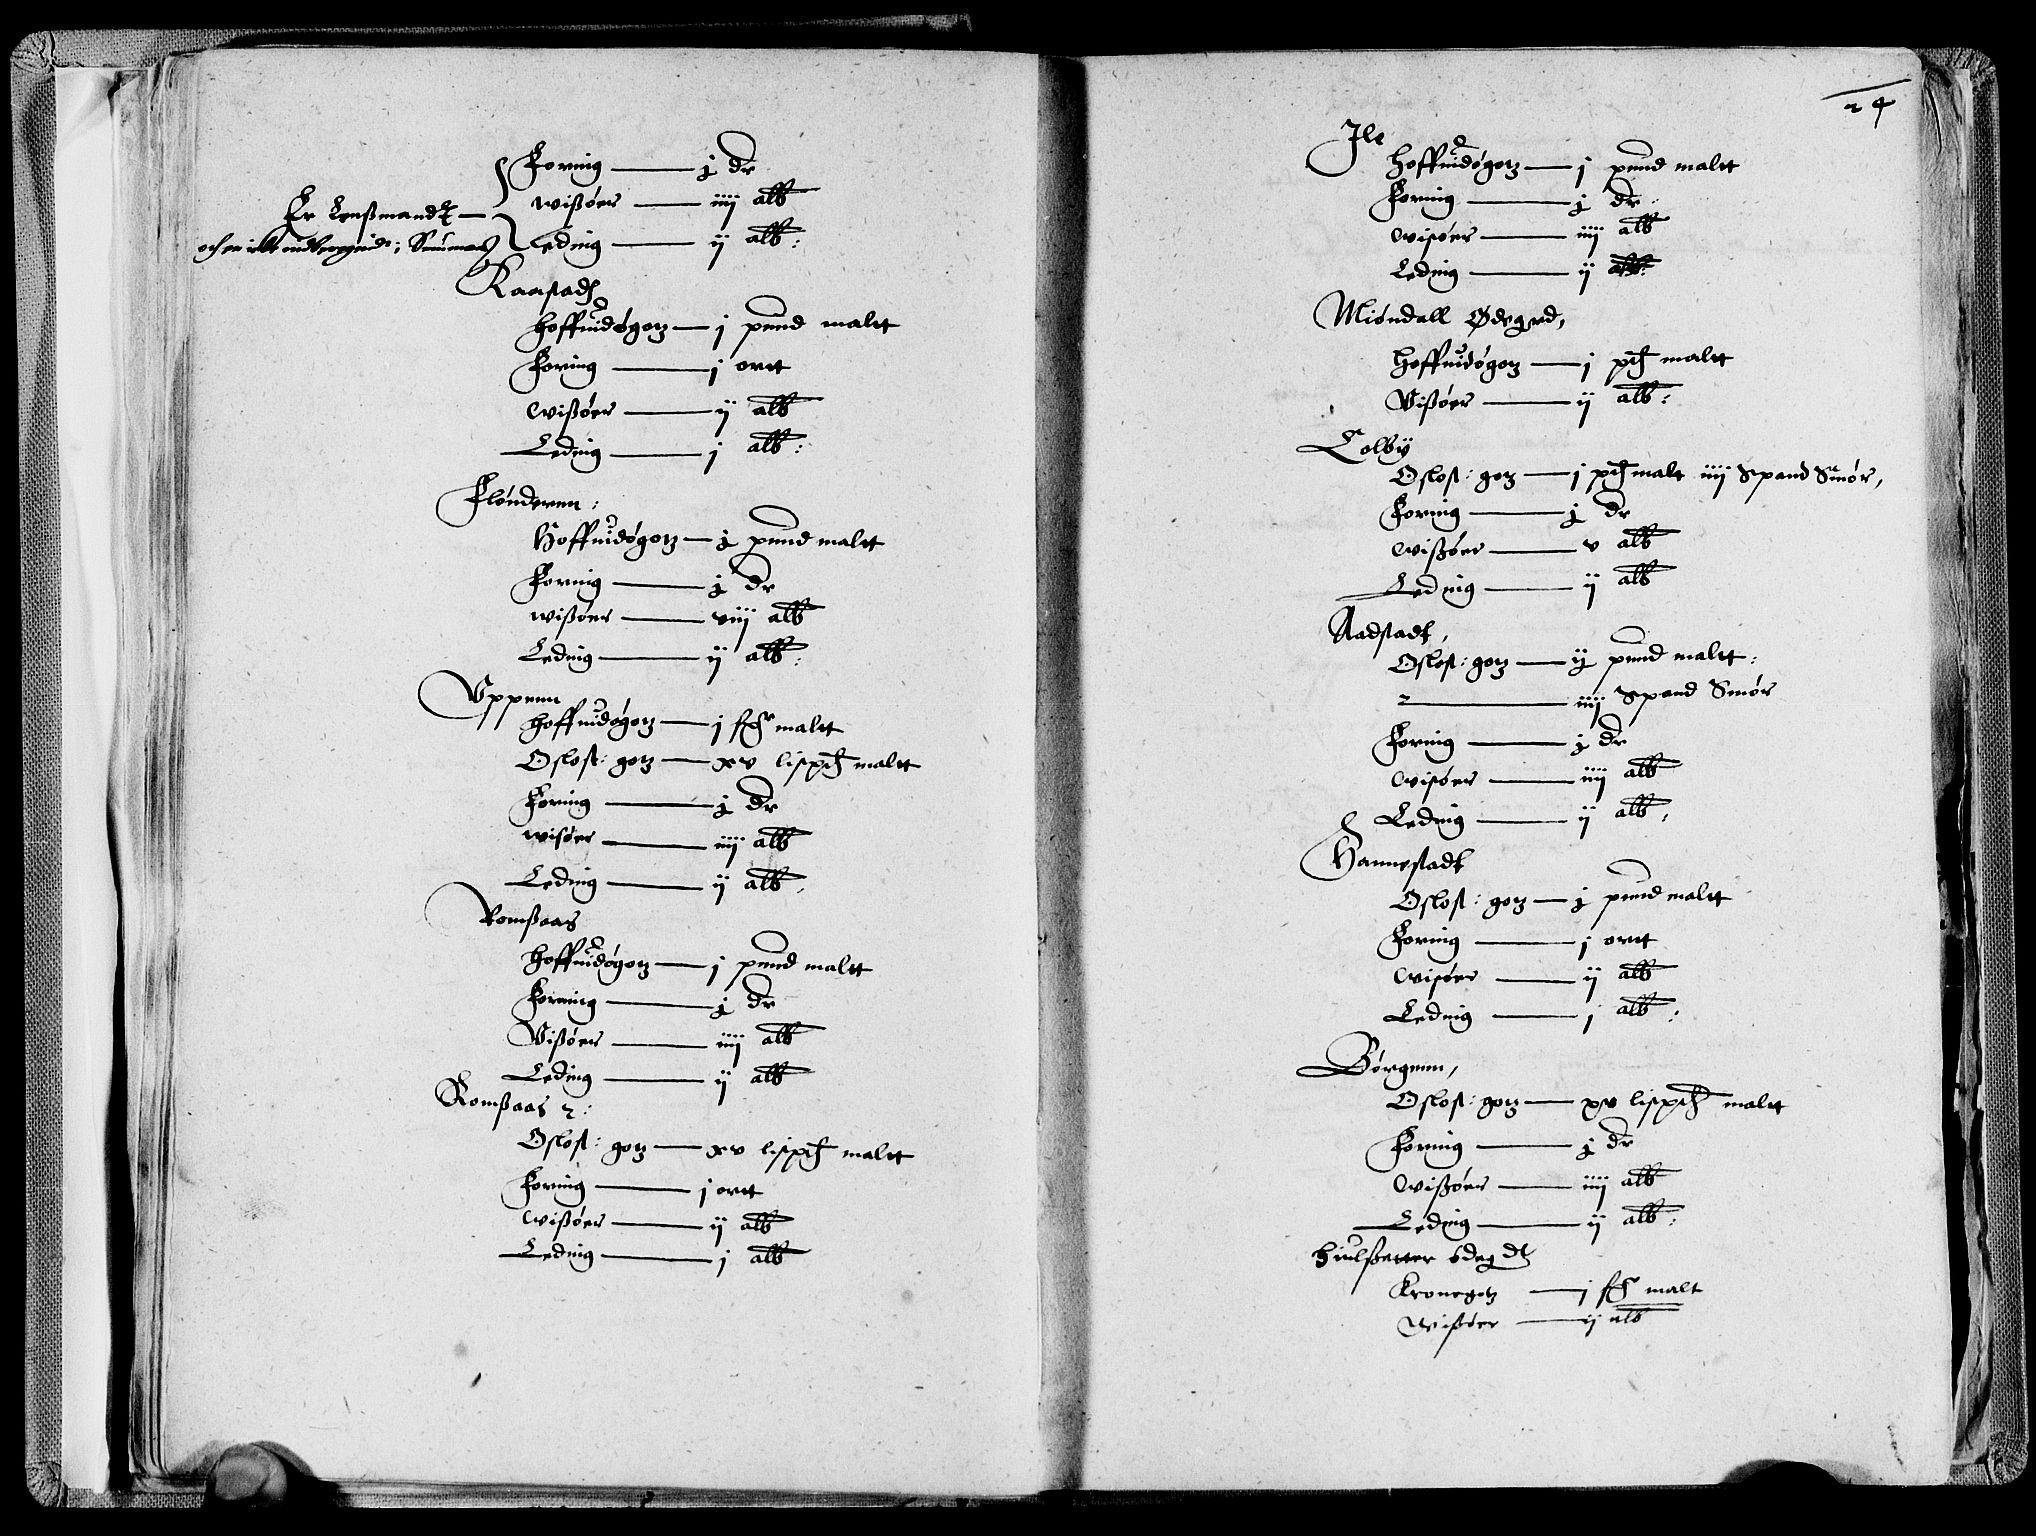 Foring — j dr
Er Lensmandt — wisßøer — iiij alb
och er icke indberegnidt i Summen Leding — ij alb:
Raastad
Hoffuidøgotz — j pund malt
Foring — j ort
wisßøer — ij alb
Leding — j alb:
Flønderenn:
Hoffuidøgotz — j pund malt
Foring — j dr
wisßøer — viij alb
Leding — ij alb:
Vppenn
Hoffuidøgotz — j malt
Oslos: gotz — xv lispd malt
Foring — j dr
wisøer — iiij alb
Leding — ij alb.
Romsaas
Hoffuidøgotz — j pund malt
Foring — j dr
Visßøer — iiij alb
Leding — ij alb
Romsaas 2:
Oslos: gotz — xv lispd malt
Foring — j ort
wisßøer — ij alb
Leding — j alb
24
Ile
Hoffuidøgotz — j pund malt
Foring — j dr
wisøer — iiij alb
Leding — ij alb:
Miøndall Ødegrd,
Hoffuidøgotz — j pd malt
Visßøer — ij alb:
Colby
Oslos: gotz — j pd malt iiij Spand Smør,
Foring — j dr
wisßøer — v alb
Leding — ij alb
Aadstadt,
Oslos: gotz — ij pund malt:
2 — iiij Spand Smør
Foring — j dr
wisøer — iiij alb
Leding — ij alb,
Hannestadt
Oslos: gotz — j pund malt
Foring — j ort
wisøer — ij alb
Leding — j alb:
Børgenn,
Oslos: gotz — xv lispd malt
Foring — j dr
wisßøer — iiij alb
Leding — ij alb:
Hiulsetter
Kronegotz — j malt
Wisßøer — ij alb